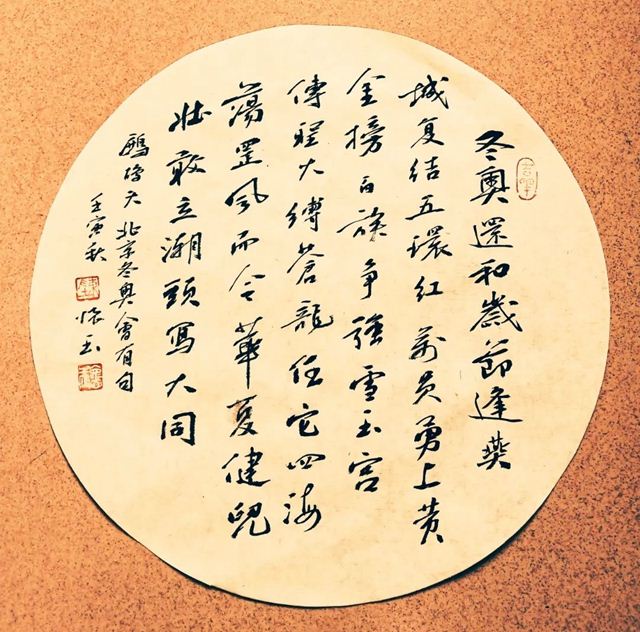 冬奧還和歲節逢燕
城复结五環红萬员勇上黄
金榜百族争强雪玉宫
傳聖火缚蒼龍任它四海
蕩罡風而今華夏健兒
壮敢立潮頭寫大同
鷓鴣天 北京冬奥會有句
壬寅秋 懷玉